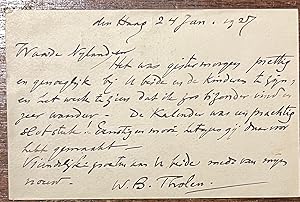 den Haag 24 Jan. 1927
Waarde Nijland
Het was gisterenmorgen prettig
en genoegelijk bij U beide en de kinderen te zijn,
en het werk te zien dat ik zoo bijzonder vind en
zeer waardeer. De Kalender was een prachtig
slotstuk! mooi
hebt gemaakt
Vriendelijke groeten aan U beide mede van mijn
vrouw. W. B. Tholen.